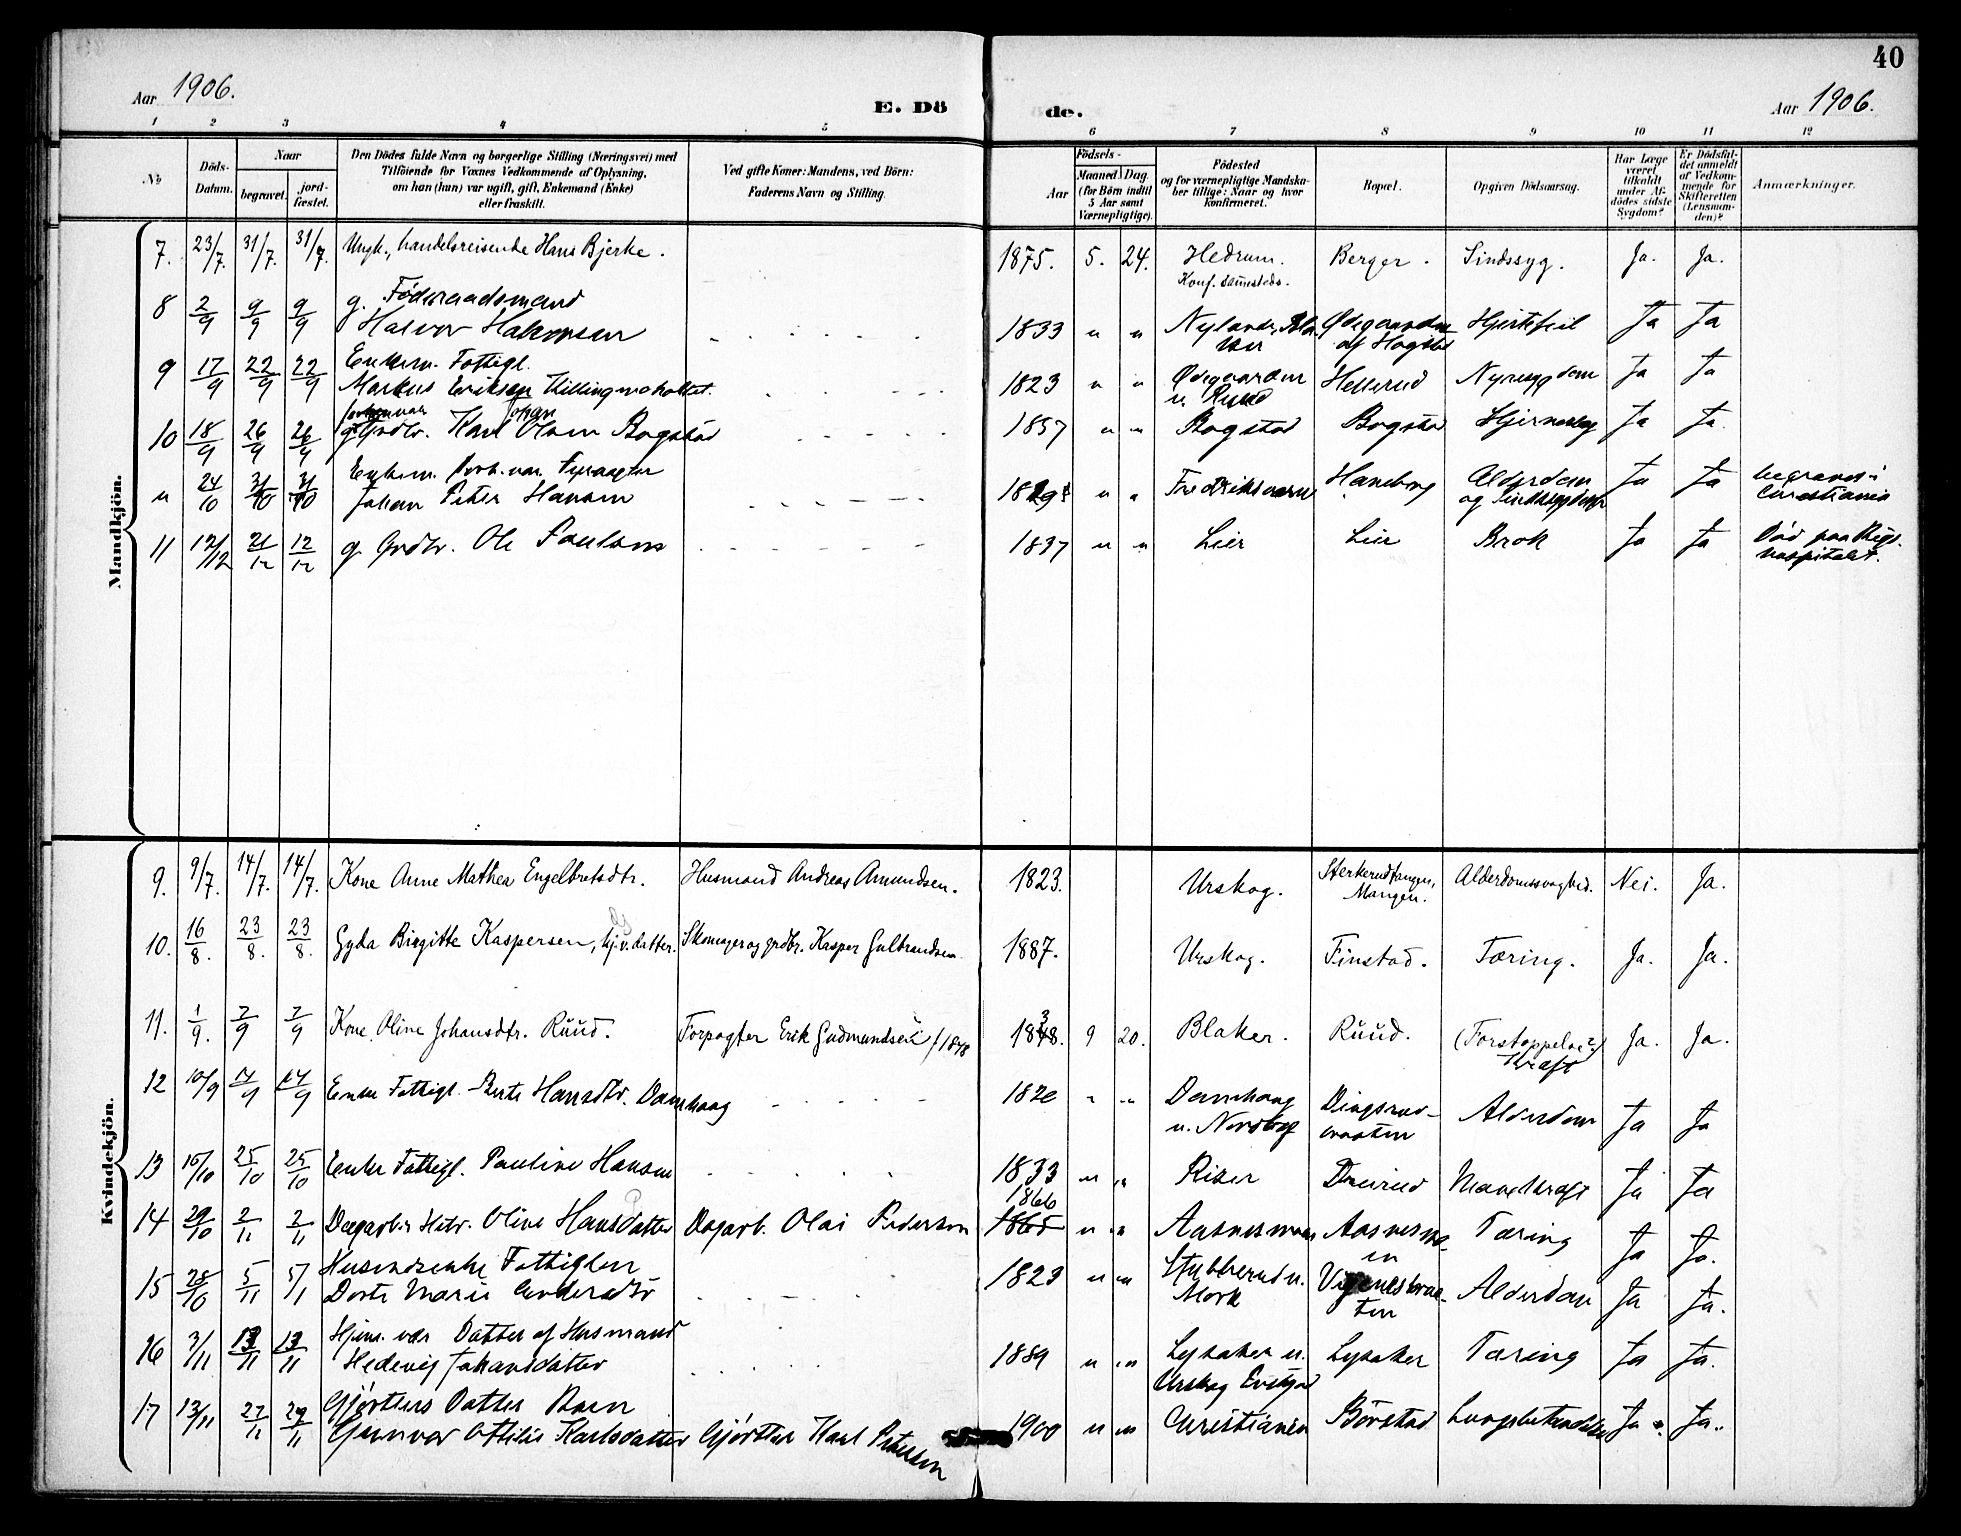 40
Aar 1906.
E. Döde.
Aar 1906.
1 2 3 4 5 6 7 8 9 10 11 12
No
Döds-Datum.
Naar
begravet.
jord-fæstet.
Den Dödes fulde Navn og borgerlige Stilling (Næringsvei) med
Tilföiende for Voxnes Vedkommende af Oplysning,
om han (hun) var ugift, gift, Enkemand (Enke)
eller fraskilt.
Ved gifte Koner: Mandens, ved Börn:
Faderens Navn og Stilling.
Födsels-
Aar
Maaned Dag
(for Börn indtil
5 Aar samt
Værnepligtige).
Födested
og for værnepligtige Mandska-
ber tillige: Naar og hvor
Konfirmeret.
Bopæl.
Opgiven Dödsaarsag.
Har Læge
været
tilkaldt
under Af-
dödes sidste
Sygdom?
Er Dödsfal-
det anmeldt
af Vedkom-
mende for
Skifteretten
(Lensman-
den)?
Anmærkninger.
Mandkjön.
7. 23/7. 31/7. 31/7. Ungk., handelsreisende Hans Bjerke. 1875. 5. 24. Hedrum. Berger. Sindssyg. Ja. Ja.
Konf. sammesteds.
8 2/9 9/9 9/9 g. Föderaadsmand
Halvor Halvorsen 1833 " " Nyland, Blaker Ødegaarden af Hogstad Hjertefeil Ja Ja
9 17/9 22/9 22/9 Enkem. Fattigl.
Markus Eriksen Killingmoholtet. 1823 " " Ødegaarden u. Hellerud Nyresygdom Ja Ja
10 18/9 26/9 26/9 forhenvær. Johan
g. Grdbr. Karl Olsen Bogstad 1857 " " Bogstad Bogstad Ja Ja.
" 24/10 31/10 31/10 Enkem.
Johan Peter Hansen " " Fredriksværn Haneborg Alderdom og Sindssygdom Ja Ja begravet i Christiania
11 12/12 21/12 12/12 g. Grdbr. Ole Paulsen 1837 " " Lier Lier Brok Ja Ja Død paa Rigs-
hospitalet.
Kvindekjön.
9. 9/7. 14/7. 14/7. Kone Anne Mathea Engelbretsdtr. Husmand Andreas Amundsen. 1823. Urskog. Sterkerudtangen, Mangen. Alderdomssvaghed. Nei. Ja.
10. 16/8. 23/8. 23/8. Gyda Birgitte Kaspersen, hj.v. datter. Skomager og grdbr. Kasper Gulbrandsen. 1887. Urskog. Finstad. Tæring. Ja. Ja.
11. 1/9. 7/9 7/9 Kone Oline Johansdtr. Ruud. Forpagter Erik Gudmundsen f. 1848 1838. 9 20. Blaker. Ruud. (Forstoppelse?)
Kræft Ja. Ja.
12 10/9 17/9 17/9 Enke Fattigl. Berte Hansdtr. Damhaug 1820 " " Damhaug
u. Nordby Dingsrud-
braaten Alderdom Ja Ja
13 16/10 25/10 25/10 Enke Fattigl. Pauline Hansen 1833 " " Riser Mavekræft Ja Ja
14 29/10 2/11 2/11 Dagarbeider Hstr. Oline Hansdatter Dagarb. Olai Pedersen 1866
1865 " " Aasnesmoen Aasnesmo-
en Tæring Ja Ja.
15 28/10 5/11 5/1 Husmdsenke Fattiglem
Dorte Marie Andersdtr 1823 " " Stubberud u.
Mork Alderdom Ja Ja.
16 3/11 13/11 13/11 Hjem. vær. Datter af Husmand
Hedevig Johansdatter 1889 " " Lysaker u.
Urskog Lysaker Tæring Ja Ja.
17 13/11 27/11 27/11 Gjörtlers Datter Barn
Gunvor Ottilie Karlsdatter Gjörtler Karl Petersen 1900 " " Christiania Börstad Lungebetændelse Ja. Ja.